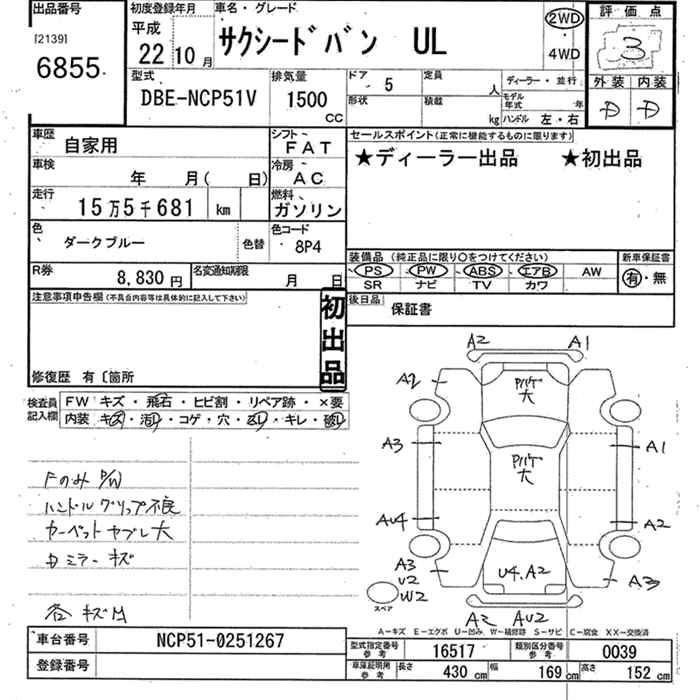 出品番号 初度登録年月 車名・グレード 評価点
[2139] 6855 平成 22 10月 サクシードバン UL 2WD ・ 4WD 3
外装 内装
D D
型式 排気量 ドア 5 定員 人 ディーラー・並行
DBE-NCP51V 1500 CC 形状 積載 kg モデル年式 年
ハンドル 左・右
車歴 自家用 シフト FAT セールスポイント(正常に機能するものに限ります)
★ディーラー出品 ★初出品
車検 年 月( 日) 冷房 AC
走行 15万5千681 km 燃料 ガソリン
色 ダークブルー 色替 色コード 8P4
装備品(純正品に限り○をつけてください) 新車保証書
PS PW ABS エアB AW 有・無
SR ナビ TV カワ
R券 8,830円 名変通知期限 月 日
後日品 保証書
注意事項申告欄(不具合内容等は具体的に記入して下さい)
初出品
修復歴 有〔箇所
検査員記入欄 FW キズ・飛石・ヒビ割・リペア跡・×要
内装 キズ・汚レ・コゲ・穴・ ・キレ・破レ
FのみP/W
ハンドルグリップ不良
カーペットヤブレ大
カミラーキズ
各キズ凹
A2 A1
A2 P/UP大
A3 A1
P/UP大
AU4 A2
A3 U2 W2 U4.A2 A3
スペア
A2 AU2
A-キズ E-エクボ U-凹み W-補修跡 S-サビ C-腐食 XX-交換済
車台番号 NCP51-0251267
登録番号
型式指定番号 参考 16517 類別区分番号 参考 0039
車庫証明用 参考 長さ 430 cm 幅 169 cm 高さ 152 cm